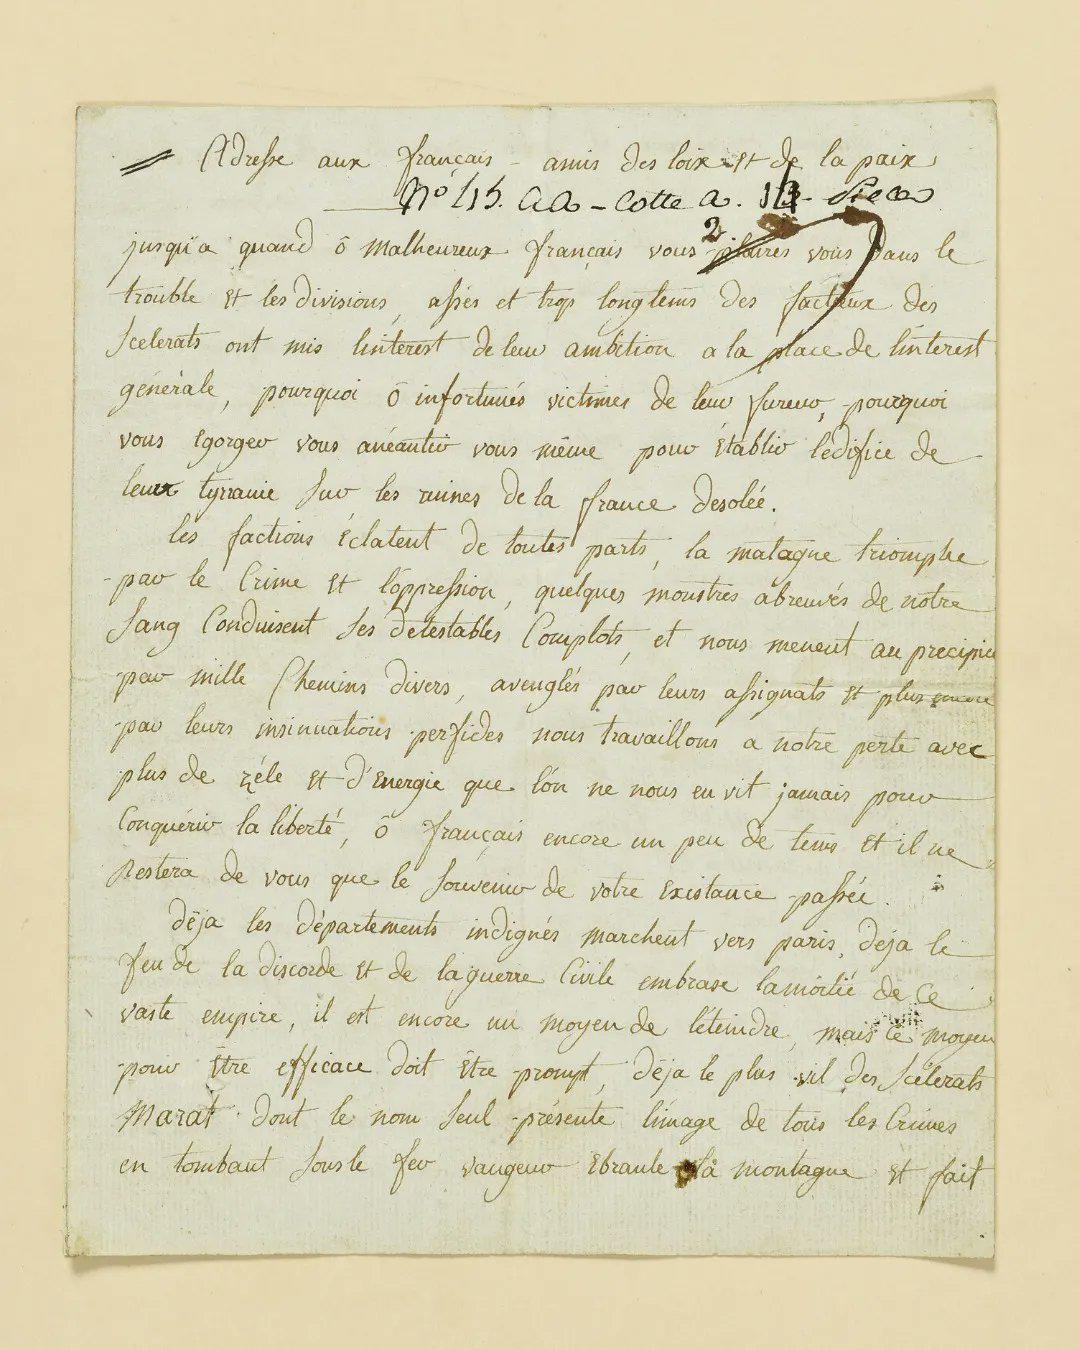 Adresse aux français - amis des loix et de la paix
No 45. aa - Cotte a. 13 - Piece
2
jusqu'a quand ô malheureux français vous plairés vous dans le
trouble et les divisions, assés et trop longtems des factieux des
Scelerats ont mis l'interest de leur ambition a la place de l'interest
générale, pourquoi ô infortunés victimes de leur fureur, pourquoi
vous Egorger vous anéantir vous même pour établir l'edifice de
leur tyrranie sur les ruines de la france desolée.
les factions éclatent de toutes parts, la matagne triomphe
par le Crime et l'oppression, quelques monstres abreuvés de notre
Sang Conduisent ses détestables Complots, et nous menent au precipice
par mille Chemins divers, aveuglés par leurs assignats et plus encore
par leurs insinuations perfides nous travaillons a notre perte avec
plus de zéle et d'Energie que l'on ne nous en vit jamais pour
Conquérir la liberté, ô français encore un peu de tems et il ne
Restera de vous que le Souvenir de votre Existance passée.
Déja les départements indignés marchent vers paris, déja le
feu de la discorde et de la guerre Civile embrase la moitié de Ce
vaste empire, il est encore un moyen de l'éteindre, mais ce moyen
pour être efficace doit être prompt, déja le plus vil des Scélerats
Marat dont le nom Seul présente l'image de tous les Crimes
en tombant sous le fer vangeur Ebranle la montagne et fait